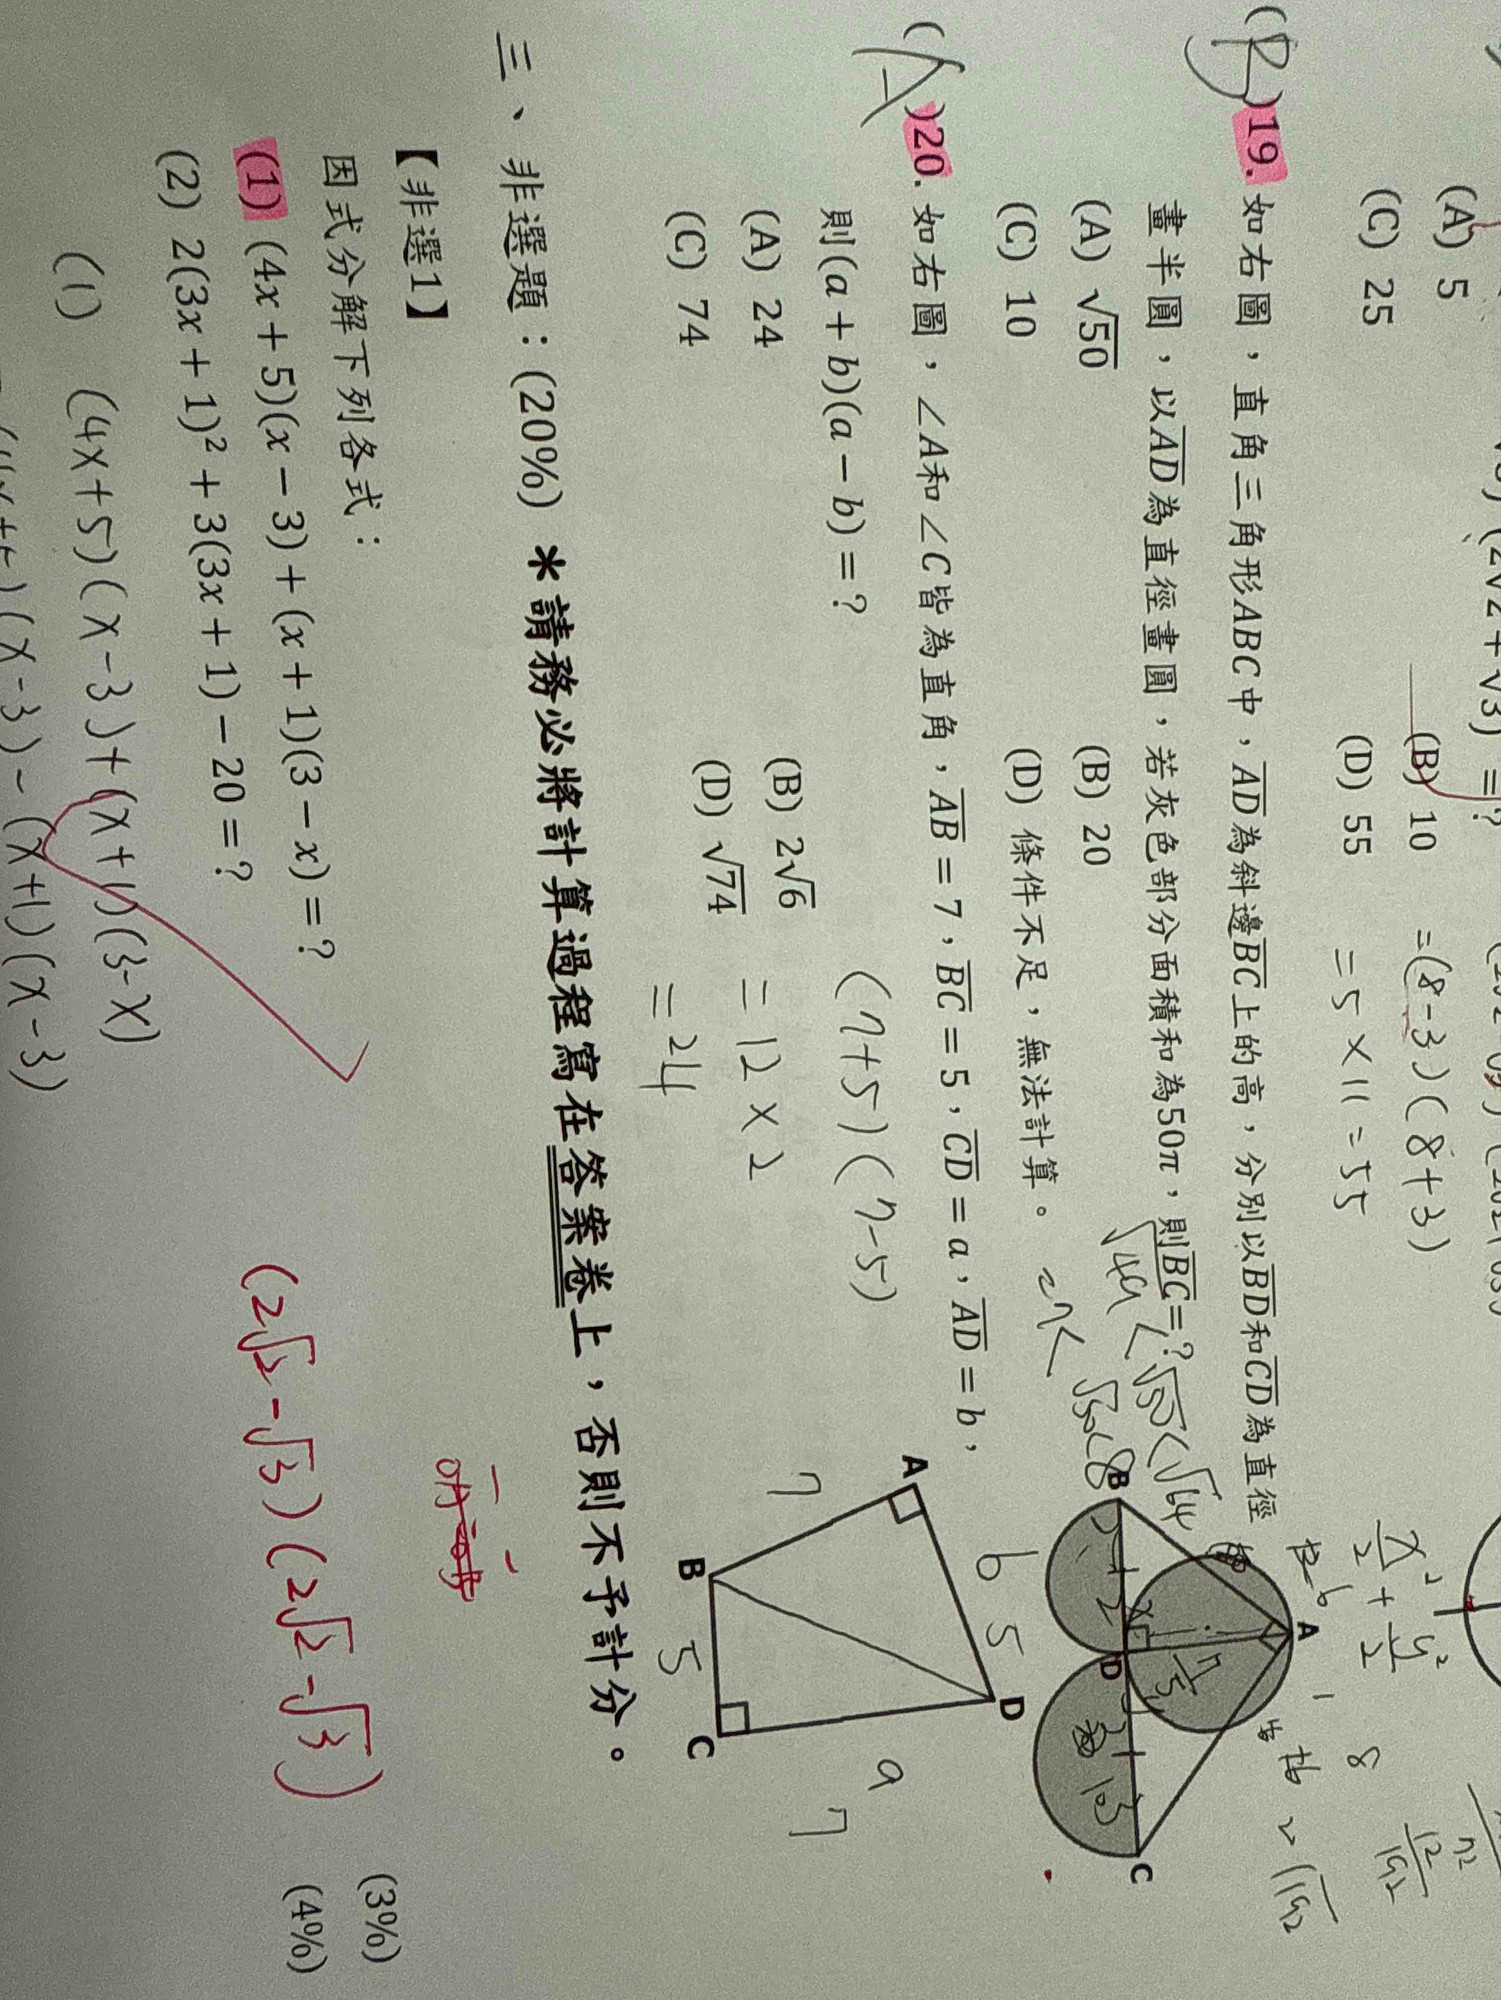 (A) 5
(B) 10
=(8-3)(8+3)
(C) 25
(D) 55
=5×11=55
(B)19. 如右圖，直角三角形ABC中，AD為斜邊BC上的高，分別以BD和CD為直徑
畫半圓，以AD為直徑畫圓，若灰色部分面積和為50π，則BC=?
(A) √50
(B) 20
(C) 10
(D) 條件不足，無法計算。
√49 < √50 < √64
√50<8
A
B
D
C
x²/2 + y²/2
(A)20. 如右圖，∠A和∠C皆為直角，AB = 7，BC = 5，CD = a，AD = b，
則(a + b)(a − b) = ?
(7+5)(7-5)
(A) 24
(B) 2√6
=12×2
(C) 74
(D) √74
=24
A
B
C
D
7
b
5
5
a
7
三、非選題：(20%) ＊請務必將計算過程寫在答案卷上，否則不予計分。
【非選1】
因式分解下列各式：
(1) (4x + 5)(x − 3) + (x + 1)(3 − x) = ?
(3%)
(2) 2(3x + 1)² + 3(3x + 1) − 20 = ?
(4%)
(2√2-√3)(2√2-√3)
(1) (4x+5)(x-3)+(x+1)(3-x)
(x-3)-(x+1)(x-3)